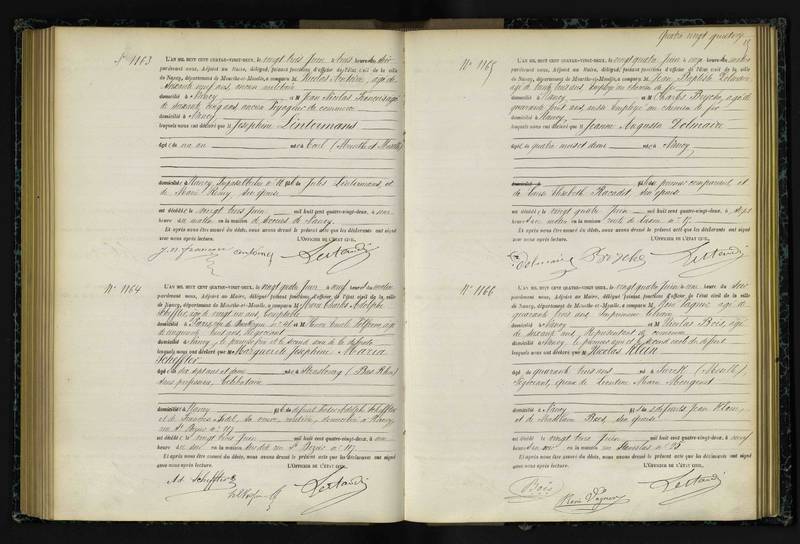 Quatre vingt quatorze
N° 1163
L'AN MIL HUIT CENT QUATRE-VINGT-DEUX, le vingt trois juin à trois heures du soir
pardevant nous, Adjoint au Maire, délégué, faisant fonctions d'officier de l'état civil de la ville
de Nancy, département de Meurthe-et-Moselle, a comparu M Nicolas Antoine, âgé de
soixante neuf ans, ancien militaire
domicilié à Nancy et M Jean Nicolas François âgé
de soixante cinq ans ancien Voyageur de commerce
domicilié à Nancy
lesquels nous ont déclaré que Joséphine Lintermans
âgé de un an né à Toul (Meurthe et Moselle)
domicilié à Nancy, fil de Jules Lintermans, et
de Marie Remy, son épouse
est décédé le vingt trois juin mil huit cent quatre-vingt-deux, à
heure du matin en la maison de Secours de Nancy.
Et après nous être assuré du décès, nous avons dressé le présent acte que les déclarants ont signé
avec nous après lecture. L'OFFICIER DE L'ÉTAT CIVIL,
N° 1164
L'AN MIL HUIT CENT QUATRE-VINGT-DEUX, le vingt quatre juin à neuf heures du matin
pardevant nous, Adjoint au Maire, délégué, faisant fonctions d'officier de l'état civil de la ville
de Nancy, département de Meurthe-et-Moselle, a comparu M Charles Adolphe
Scheffter, âgé de vingt six ans, comptable
domicilié à Paris, et M
de cinquante huit ans Négociant
domicilié à Nancy, le premier fils et le second ami de la défunte
lesquels nous ont déclaré que Marguerite Joséphine Maria
Scheffter
âgé de dix sept ans et demi né à Strasbourg (Bas Rhin)
sans profession, Célibataire
domicilié à Nancy fil de défunt Adolphe Scheffter
et de Françoise sa veuve, rentière, domiciliée à Nancy,
rue St Dizier n° 117
est décédé le vingt trois juin mil huit cent quatre-vingt-deux, à onze
heures du soir en la maison rue St Dizier n° 117
Et après nous être assuré du décès, nous avons dressé le présent acte que les déclarants ont signé
avec nous après lecture. L'OFFICIER DE L'ÉTAT CIVIL,
Ad Scheffter
N° 1165
L'AN MIL HUIT CENT QUATRE-VINGT-DEUX, le vingt quatre juin à onze heures du matin
pardevant nous, Adjoint au Maire, délégué, faisant fonctions d'officier de l'état civil de la ville
de Nancy, département de Meurthe-et-Moselle, a comparu M Jean Baptiste Delmaire
âgé de trente trois ans, Employé au chemin de fer
domicilié à Nancy et M Charles Boyché, âgé de
quarante huit ans, aussi Employé au chemin de fer
domicilié à Nancy,
lesquels nous ont déclaré que Jeanne Augusta Delmaire
âgé de quatre mois et demi né à Nancy
fil du premier comparant et
de Elisabeth Racadot, son épouse
est décédé le vingt quatre juin mil huit cent quatre-vingt-deux, à sept
heures du matin en la maison route de Toul n° 17
Et après nous être assuré du décès, nous avons dressé le présent acte que les déclarants ont signé
avec nous après lecture. L'OFFICIER DE L'ÉTAT CIVIL,
Delmaire Boyché
N° 1166
L'AN MIL HUIT CENT QUATRE-VINGT-DEUX, le vingt quatre juin à une heure du soir
pardevant nous, Adjoint au Maire, délégué, faisant fonctions d'officier de l'état civil de la ville
de Nancy, département de Meurthe-et-Moselle, a comparu M René Vagner, âgé de
quarante trois ans, Imprimeur
domicilié à Nancy et M Nicolas Boès, âgé
de ans, Représentant de commerce
domicilié à Nancy, le premier ami et le second oncle du défunt
lesquels nous ont déclaré que Nicolas Klein
âgé de quarante trois ans né à (Moselle),
Négociant, époux de Léontine Marie Mengeot
domicilié à Nancy fils de défunts Jean Klein,
et de Boès, son épouse
est décédé le vingt trois juin mil huit cent quatre-vingt-deux, à neuf
heures du soir en la maison rue Stanislas n° 25
Et après nous être assuré du décès, nous avons dressé le présent acte que les déclarants ont signé
avec nous après lecture. L'OFFICIER DE L'ÉTAT CIVIL,
Boès
René Vagner